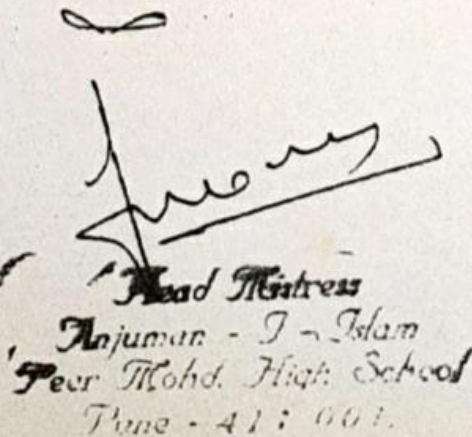 Head Mistress
Anjuman - I - Islam
Peer Mohd. High School
Pune - 411 001.